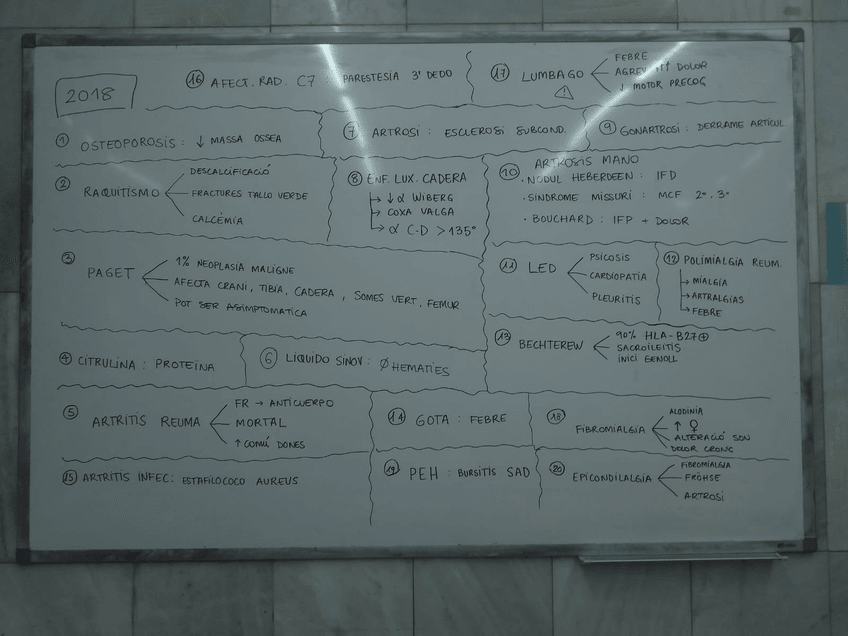 2018
16 AFECT. RAD. C7 : PARESTESIA 3' DEDO
17 LUMBAGO
FEBRE
AGREV ↑↑ DOLOR
↓ MOTOR PRECOÇ
1 OSTEOPOROSIS : ↓ MASSA OSSEA
7 ARTROSI : ESCLEROSI SUBCOND.
9 GONARTROSI : DERRAME ARTICUL
2 RAQUITISMO
DESCALCIFICACIÓ
FRACTURES TALLO VERDE
CALCÈMIA
8 ENF. LUX. CADERA
↓α WIBERG
COXA VALGA
α C-D > 135°
10 ARTROSIS MANO
· NODUL HEBERDEEN : IFD
· SINDROME MISSURI : MCF 2ª. 3ª
· BOUCHARD : IFP + DOLOR
3 PAGET
1% NEOPLASIA MALIGNE
AFECTA CRANI, TIBIA, CADERA, SOMES VERT, FEMUR
POT SER ASIMPTOMATICA
11 LED
PSICOSIS
CARDIOPATIA
PLEURITIS
12 POLIMIALGIA REUM.
MIALGIA
ARTRALGIAS
FEBRE
13 BECHTEREW
90% HLA-B27⊕
SACROILEITIS
INICI GENOLL
4 CITRULINA : PROTEÏNA
6 LÍQUIDO SINOV : Ø HEMATÍES
5 ARTRITIS REUMA
FR → ANTICUERPO
MORTAL
↑ COMÚ DONES
14 GOTA : FEBRE
18 FIBROMIALGIA
ALODINIA
↑ ♀
ALTERACIÓ SON
DOLOR CRONC
15 ARTRITIS INFEC : ESTAFILOCOCO AUREUS
19 PEH : BURSITIS SAD
20 EPICONDILALGIA
FIBROMIALGIA
FRÖHSE
ARTROSI